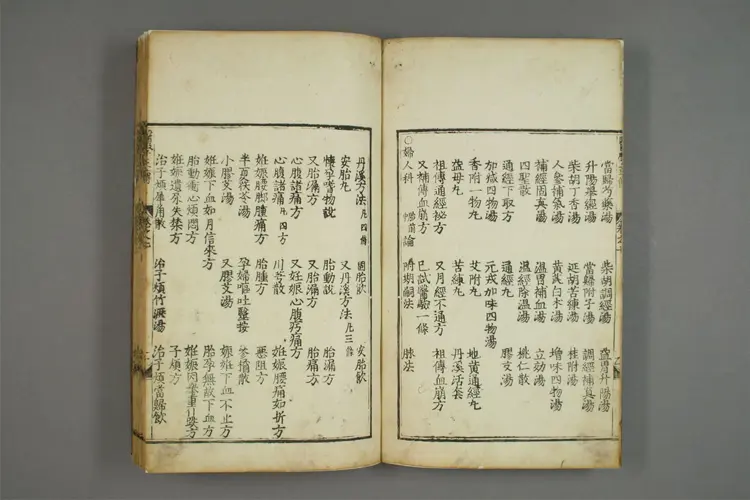 當歸芍藥湯 柴胡調經湯 益胃升陽湯
升陽舉經湯 當歸附子湯 調經補真湯
柴胡丁香湯 延胡苦練湯 桂附湯
人參補氣湯 黃芪白朮湯 增味四物湯
補經固真湯 溫胃補血湯 立効湯
四聖散 溫經除湿湯 桃仁散
通經下取方 通經丸 膠艾湯
加減四物湯 元戎加味四物湯
香附一物丸 艾附丸 地黃通經丸
益母丸 苦練丸 丹溪活套
祖傳通經秘方 又月經不通方 祖傳血崩方
又補傳血崩方 已試醫驗一條
○婦人科 論 嗣法 脉法
丹溪方法凡四條 固胎飲 安胎飲
安胎丸 又丹溪方法凡三條
懷孕嗜物說 胎動說 胎漏方
又胎漏方 又胎漏方 胎痛方
心腹諸痛方 又妊娠心腹疞痛方
心腹諸痛凡四方 川芎散 妊娠腰痛如折方
妊娠腰脚腫痛方 胎腫方 惡阻方
半夏茯苓湯 孕婦嘔吐醫按 參橘散
小膠艾湯 又膠艾湯 妊娠下血不止方
妊娠下血如月信來方 胎孕無故下血方
胎動衝心煩悶方 妊娠因
妊娠遺尿失禁方 子煩方
治子煩犀角散 治子煩竹瀝湯 治子煩當歸飲